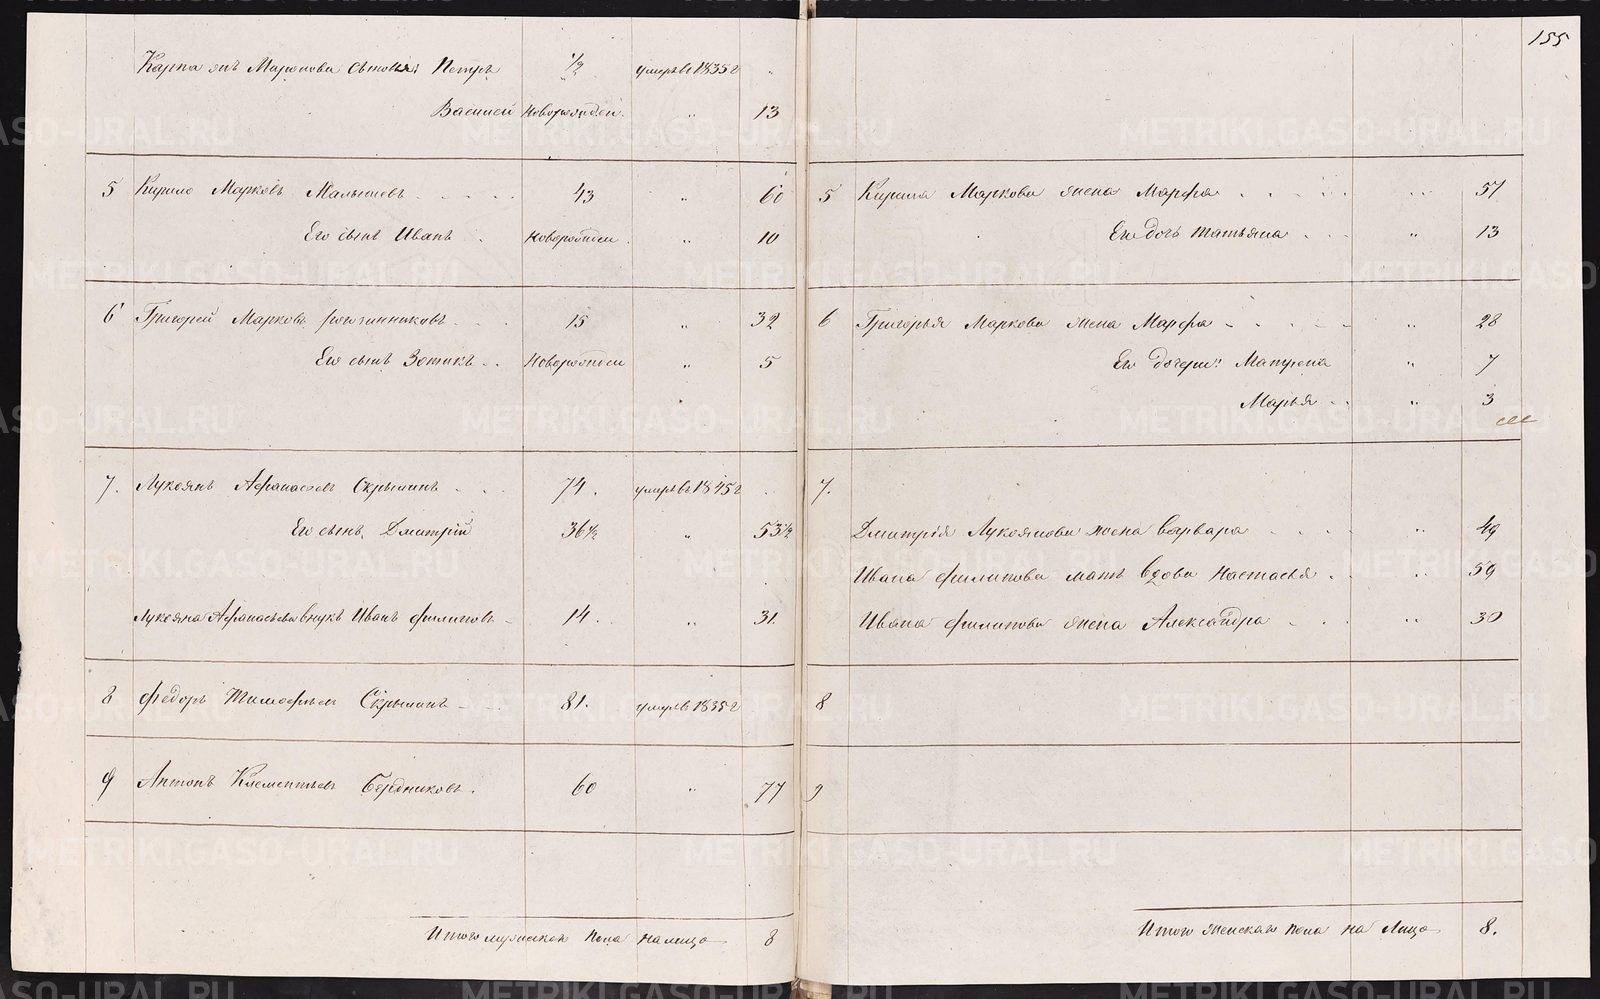 155
Карпа Маркова сыновья: Петръ 1/2 умеръ въ 1835 г "
Василей новорожден. " 13
5 Кирило Марковъ Малышевъ 43 " 60
Его сынъ Иванъ новорожден. " 10
6 Григорей Марковъ 15 " 32
Его сынъ Зотикъ новорожден " 5
7. Лукоянъ Афанасьевъ Скрыпинъ 74. умеръ въ 1845 г
Его сынъ Дмитрій 36 1/2 " 53 1/2
Лукояна Афанасьева внукъ Иванъ Филиповъ 14. " 31.
8 Федоръ Тимофеевъ Скрыпинъ 81. умеръ въ 1835 г
9 Антонъ Клементьевъ Бердниковъ. 60 " 77
Итого мужеска пола на лицо 8
5 Кирила Маркова жена Марфа " 57
Его дочь Татьяна " 13
6 Григорья Маркова жена Марфа " 28
Его дочери: Матрена " 7
Марья " 3
7.
Дмитрія Лукоянова жена Варвара " 49
Ивана Филипова мать вдова Настасья " 59
Ивана Филипова жена Александра " 30
8
9
Итого женска пола на лицо 8.
METRIKI.GASO-URAL.RU